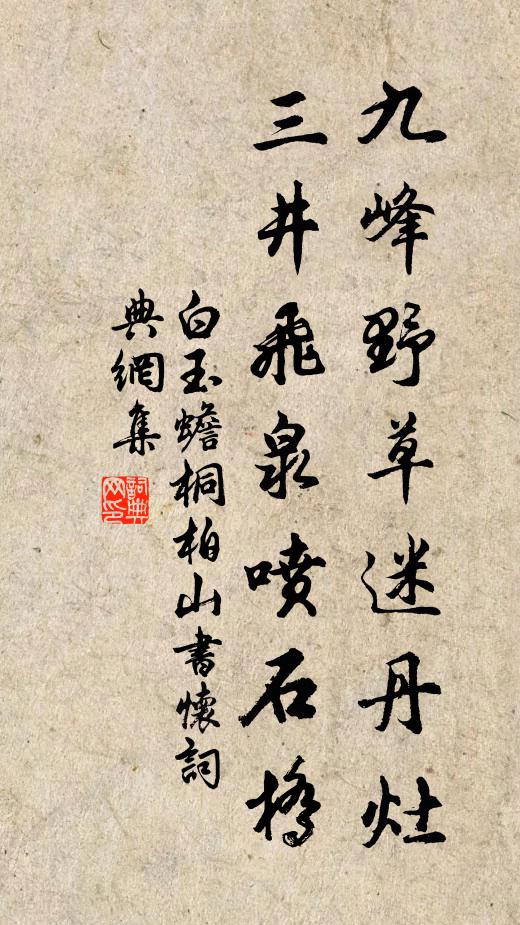 九峰野草迷丹灶
三井飛泉噴石橋
白玉蟾桐柏山書懷詞
典網集
詞典網印